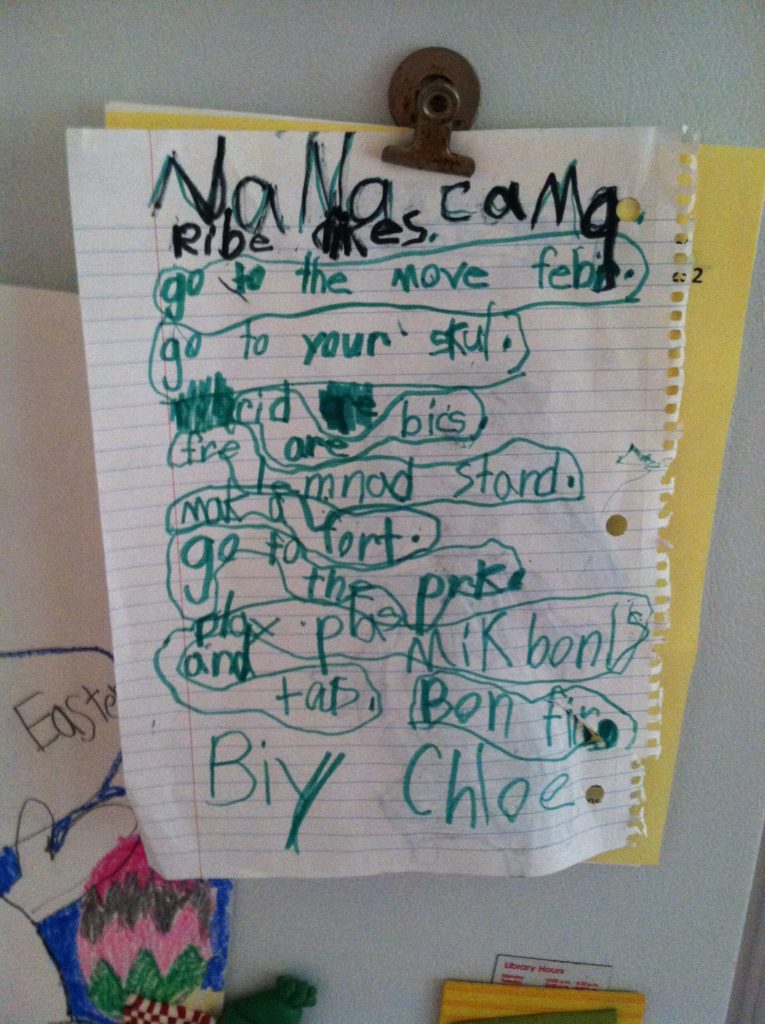 NaNa camq
Ribe kes.
go to the move feb
go to your skul.
rid bics
fre are
lemnod stand.
mak a fort.
go to
the prk.
play plas MiK bonls
and tab. Bon fir.
Biy Chloe
Easte
2
Library Hours